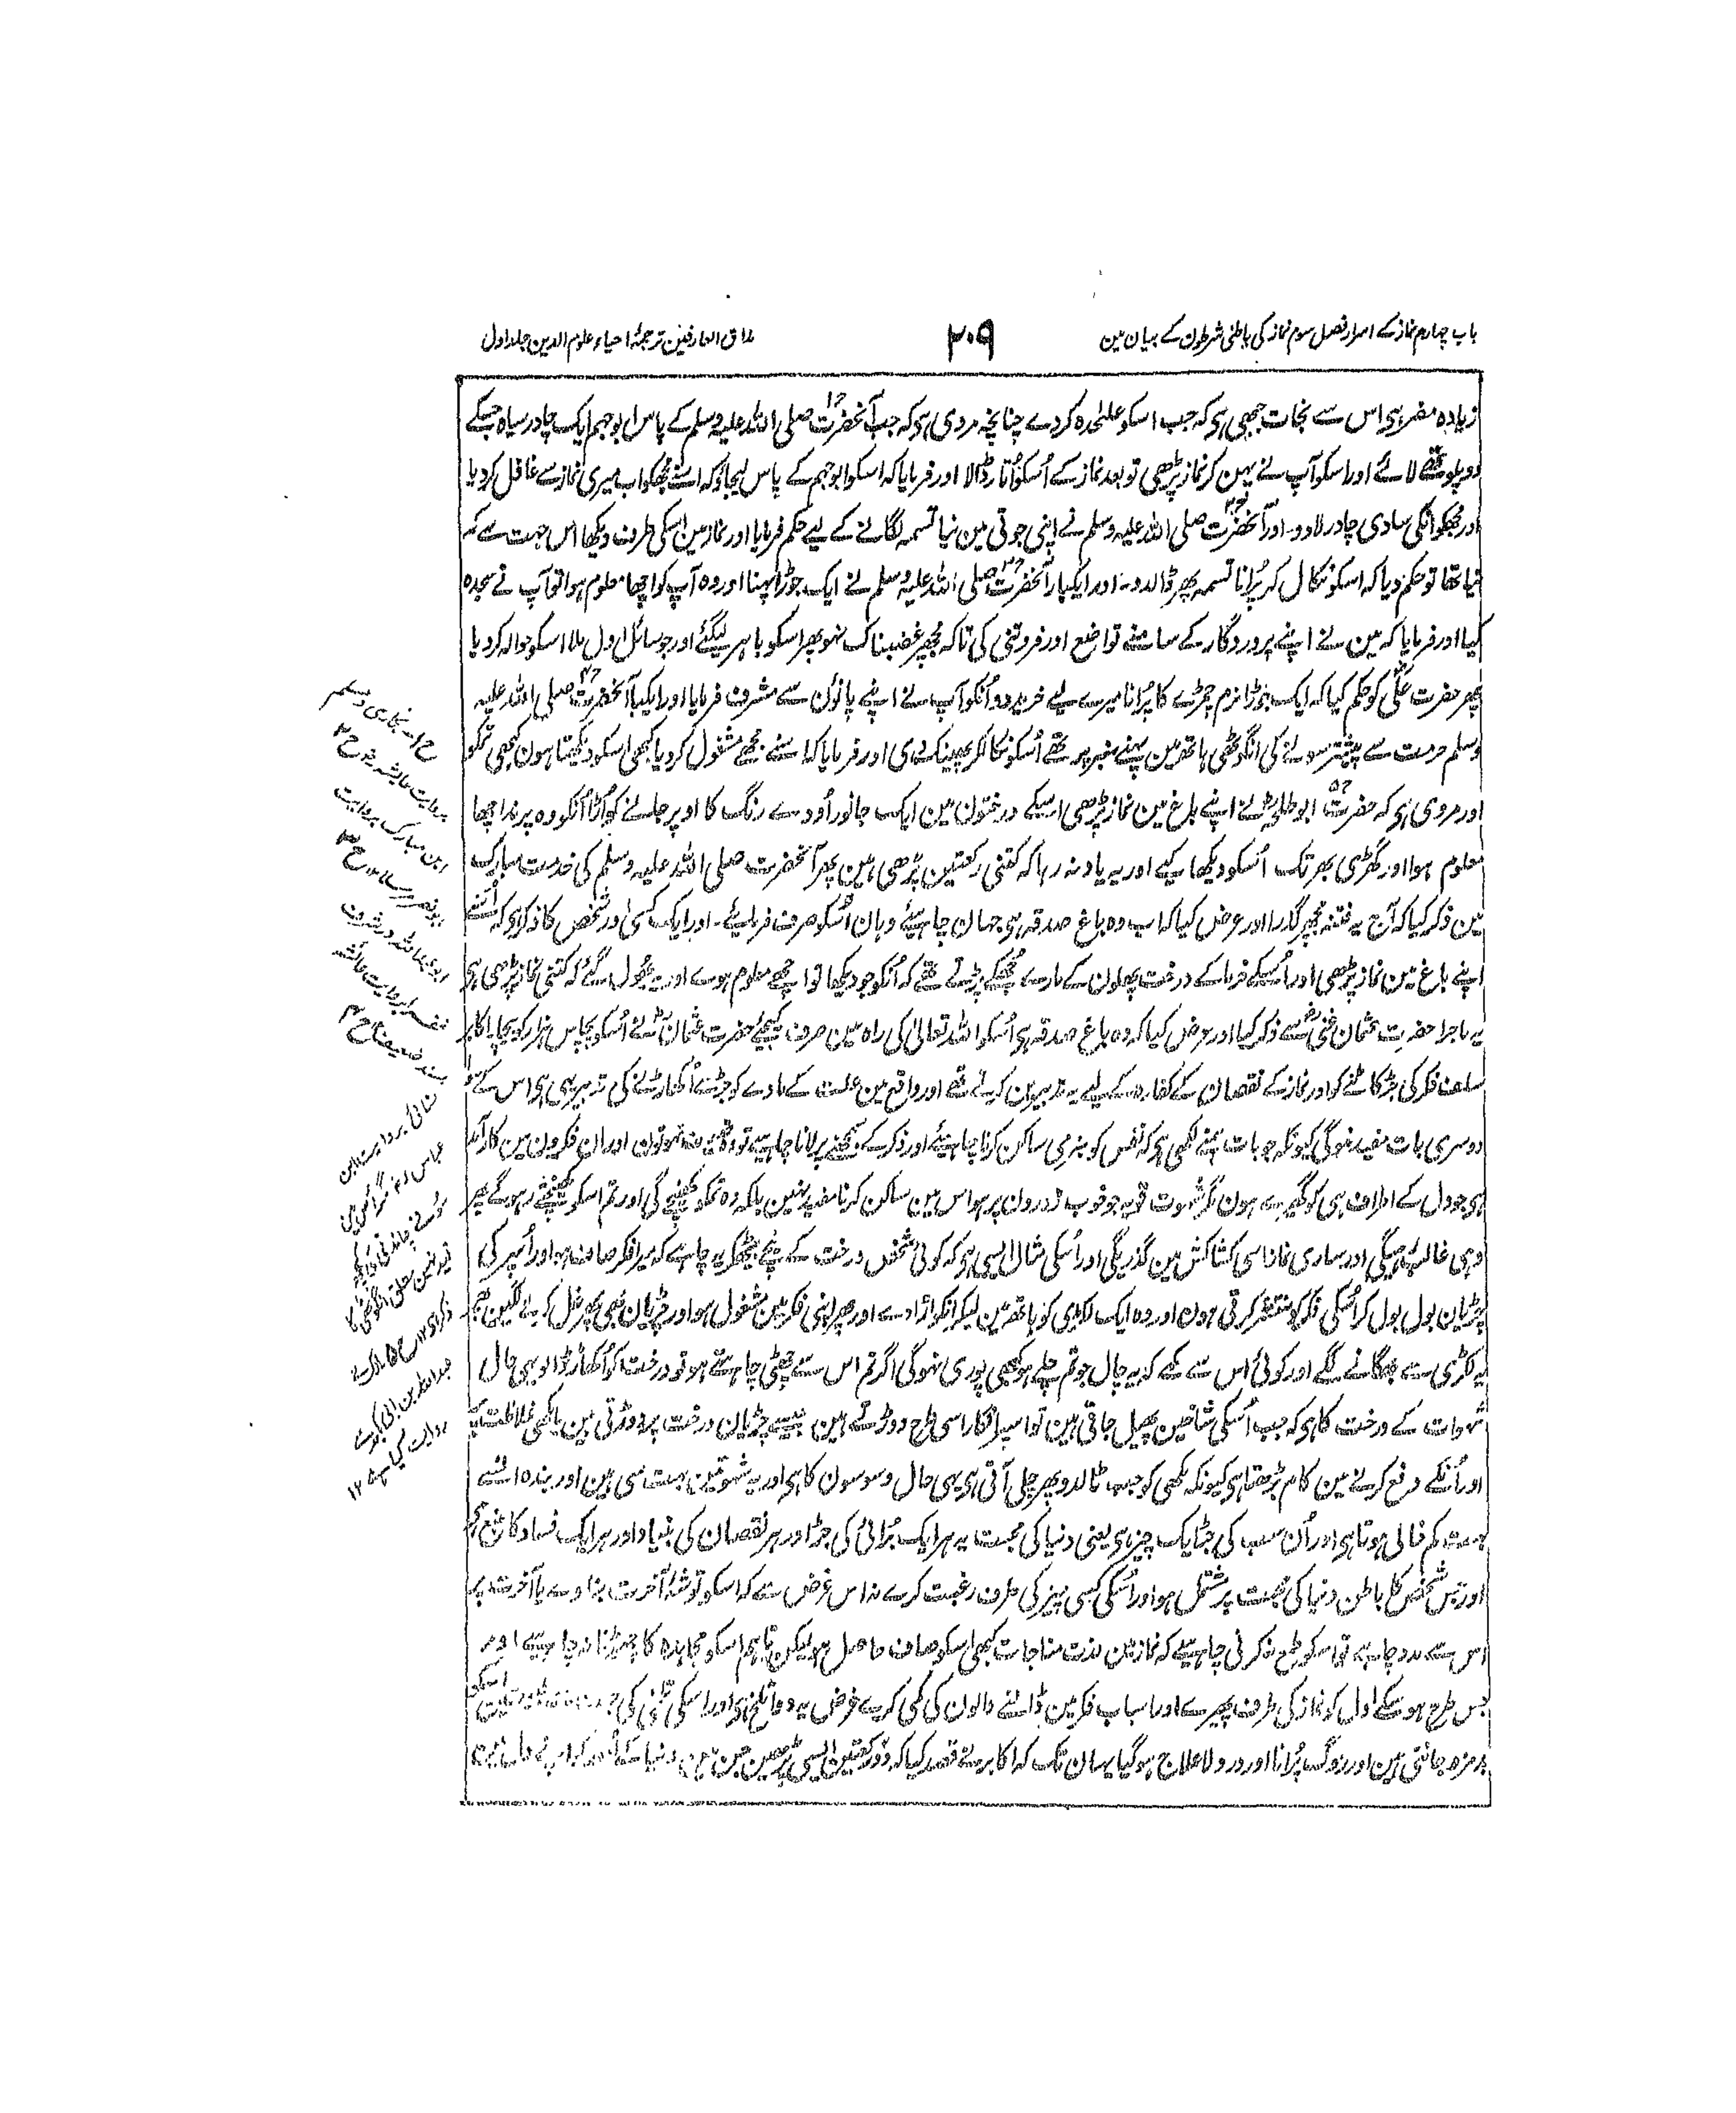 باب چہارم نماز کے اسرار فصل سوم نماز کی باطنی شرطون کے بیان مین
۲۰۹
مذاق العارفین ترجمۂ احیاء علوم الدین جلد اول
زیادہ مضر ہی اس سے نجات جبھی ہی کہ جب اسکو علحٰدہ کردے چنانچہ مروی ہی کہ جب آنحضرت صلی اللہ علیہ وسلم کے پاس ابوجہم ایک چادر سیاہ جسکے
دو پلو تھے لائے اور اسکو آپ نے پہن کر نماز پڑھی تو بعد نماز کے اُسکو اُتار ڈالا اور فرمایا کہ اسکو ابوجہم کے پاس لیجاؤ کہ اسنے مجھکو اب میری نماز سے غافل کردیا
اور مجھکو انکی سادی چادر لادو۔ اور آنحضرت صلی اللہ علیہ وسلم نے اپنی جوتی مین نیا تسمہ لگانے کے لیے حکم فرمایا اور نماز مین اُسکی طرف دیکھا اس جہت سے کہ
نیا تھا تو حکم دیا کہ اسکو نکال کر پُرانا تسمہ پھر ڈالدو۔ اور ایکبار آنحضرت صلی اللہ علیہ وسلم نے ایک جوڑا پہنا اور وہ آپ کو اچھا معلوم ہوا تو آپ نے سجدہ
کیا اور فرمایا کہ مین نے اپنے پروردگار کے سامنے تواضع اور فروتنی کی تاکہ مجھپر غضبناک نہو پھر اسکو باہر لیگئے اور جو سائل اول ملا اسکو حوالہ کردیا
پھر حضرت علیؓ کو حکم کیا کہ ایک جوڑا نرم چمڑے کا پُرانا میرے لیے خریدو اور اُنکو آپ نے اپنے پانؤن سے مشرف فرمایا اور ایکبار آنحضرت صلی اللہ علیہ
وسلم حرمت سے پیشتر سونے کی انگوٹھی ہاتھ مین پہنے منبر پر تھے اُسکو نکالکر پھینک دی اور فرمایا کہ اسنے مجھے مشغول کردیا کبھی اسکو دیکھتا ہون کبھی تمکو
اور مروی ہی کہ حضرت ابو طلحہؓ نے اپنے باغ مین نماز پڑھی اسکے درختون مین ایک جانور اُودے رنگ کا اوپر جانے کو اُڑا اُنکو وہ پرندا اچھا
معلوم ہوا اور گھڑی بھر تک اُسکو دیکھا کیے اور یہ یاد نہ رہا کہ کتنی رکعتین پڑھی ہین پھر آنحضرت صلی اللہ علیہ وسلم کی خدمت مبارک
مین ذکر کیا کہ آج یہ فتنہ مجھپر گذرا اور عرض کیا کہ اب وہ باغ صدقہ ہی جہان چاہیئے وہان اُسکو صرف فرمایئے۔ اور ایک کسی اور شخص کا ذکر ہی کہ اُسنے
اپنے باغ مین نماز پڑھی اور اُسکے خرما کے درخت پھلون کے مارے جُھکے پڑتے تھے کہ اُنکو جو دیکھا تو اچھے معلوم ہوے اور یہ بھول گئے کہ کتنی نماز پڑھی ہی
یہ ماجرا حضرت عثمان غنیؓ سے ذکر کیا اور عرض کیا کہ وہ باغ صدقہ ہی اُسکو اللہ تعالیٰ کی راہ مین صرف کیجئے حضرت عثمانؓ نے اُسکو پچاس ہزار کو بیچا پس اکابر
سلف فکر کی جڑ کاٹنے کو اور نماز کے نقصان کے کفارہ کے لیے یہ تدبیرین کرتے تھے اور واقع مین علت کے مادے کو جڑ سے اُکھاڑنے کی تدبیر یہی ہی اس کے سوا
دوسری بات مفید نہوگی کیونکہ جو بات ہمنے لکھی ہی کہ نفس کو بنرمی ساکن کرنا چاہیئے اور ذکر کے سمجھنے پر لانا چاہیے تو وہ اور ان فکرون مین کارآمد
ہی جو دل کے اطراف ہی کو گھیرے ہون مگر شہوت قویہ جو خوب زورون پر ہو اس مین ساکن کرنا مفید نہین بلکہ وہ تمکو کھینچے گی اور تم اسکو کھینچتے رہوگے پھر
وہی غالب رہیگی اور ساری نماز اسی کشاکش مین گذریگی اور اُسکی مثال ایسی ہی کہ کوئی شخص درخت کے نیچے بیٹھکر یہ چاہے کہ میرا فکر صاف ہو اور اُسپر کی
چڑیان بول بول کر اُسکی فکر کو منتشر کرتی ہون اور وہ ایک لکڑی کو ہاتھ مین لیکر انکو اڑادے اور پھر اپنی فکر مین مشغول ہو اور چڑیان بھی پھر غل کرنے لگین پھر
یہ لکڑی سے بھگانے لگے اور کوئی اس سے کہے کہ یہ چال جو تم چلے ہو کبھی پوری نہوگی اگر تم اس سے چھٹی چاہتے ہو تو درخت کو اُکھاڑ ڈالو یہی حال
شہوات کے درخت کا ہی کہ جب اُسکی شاخین پھیل جاتی ہین تو اسپر افکار اسی طرح دوڑتے ہین جیسے چڑیان درخت پر دوڑتی ہین یا مکھی غلاظت پر
اور اُنکے دفع کرنے مین کام بڑھتا ہی کیونکہ مکھی کو جب ٹالدو پھر چلی آتی ہی یہی حال وسوسون کا ہی اور یہ شہوتین بہت سی ہین اور بندہ اُنسے
بہت کم خالی ہوتا ہی اور اُن سب کی جڑ ایک چیز ہی یعنی دنیا کی محبت یہ ہر ایک بُرائی کی جڑ اور ہر نقصان کی بنیاد اور ہر ایک فساد کا منبع ہی
اور جس شخص کا باطن دنیا کی محبت پر مشتمل ہو اور اُسکی کسی چیز کی طرف رغبت کرے نہ اس غرض سے کہ اسکو توشۂ آخرت بناوے یا آخرت پر
اس سے مدد چاہے تو اسکو طمع نہ کرنی چاہیے کہ نماز مین لذت مناجات کبھی اسکو صاف حاصل ہو لیکن تاہم اسکو مجاہدہ کا چھوڑنا نہ چاہیے اور
جس طرح ہوسکے دل کو نماز کی طرف پھیرے اور اسباب فکر مین ڈالنے والون کی کمی کرے غرض یہ دوا تلخ ہی اور اسکی تلخی کی اسکو
بدمزہ جانتی ہین اور روگ پُرانا اور درد لاعلاج ہوگیا یہان تک کہ اکابر نے قصد کیا کہ دو رکعتین ایسی پڑھین جن مین دنیا کے
ح ۱۔ بخاری و مسلم
بروایت عایشہ رض ح ۲
ابن مبارک بروایت
ابو نصر مرسلا ح ۳
ابو عبداللہ در شرف
بروایت عائشہ
بسند ضعیف ح ۴
نسائی بروایت ابن
عباس مگر اس مین
سونے چاندی کی
قید نہین مطلق انگوٹھی کا
ذکر ہی
عبداللہ بن ابی بکر سے
روایت کیا ہے ۱۲